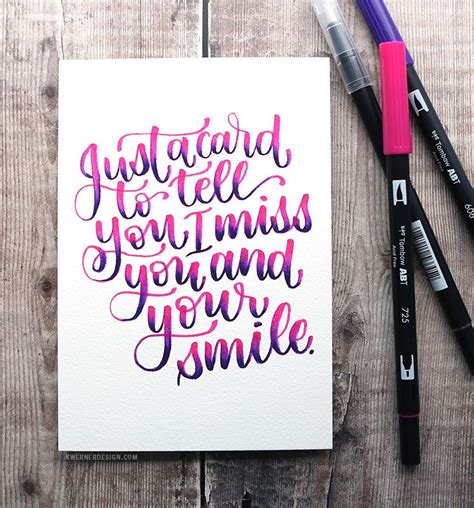 Just a card
to tell
you I miss
you and
your
smile.
Tombow ABT
725
Tombow ABT
KWERNERDESIGN.COM